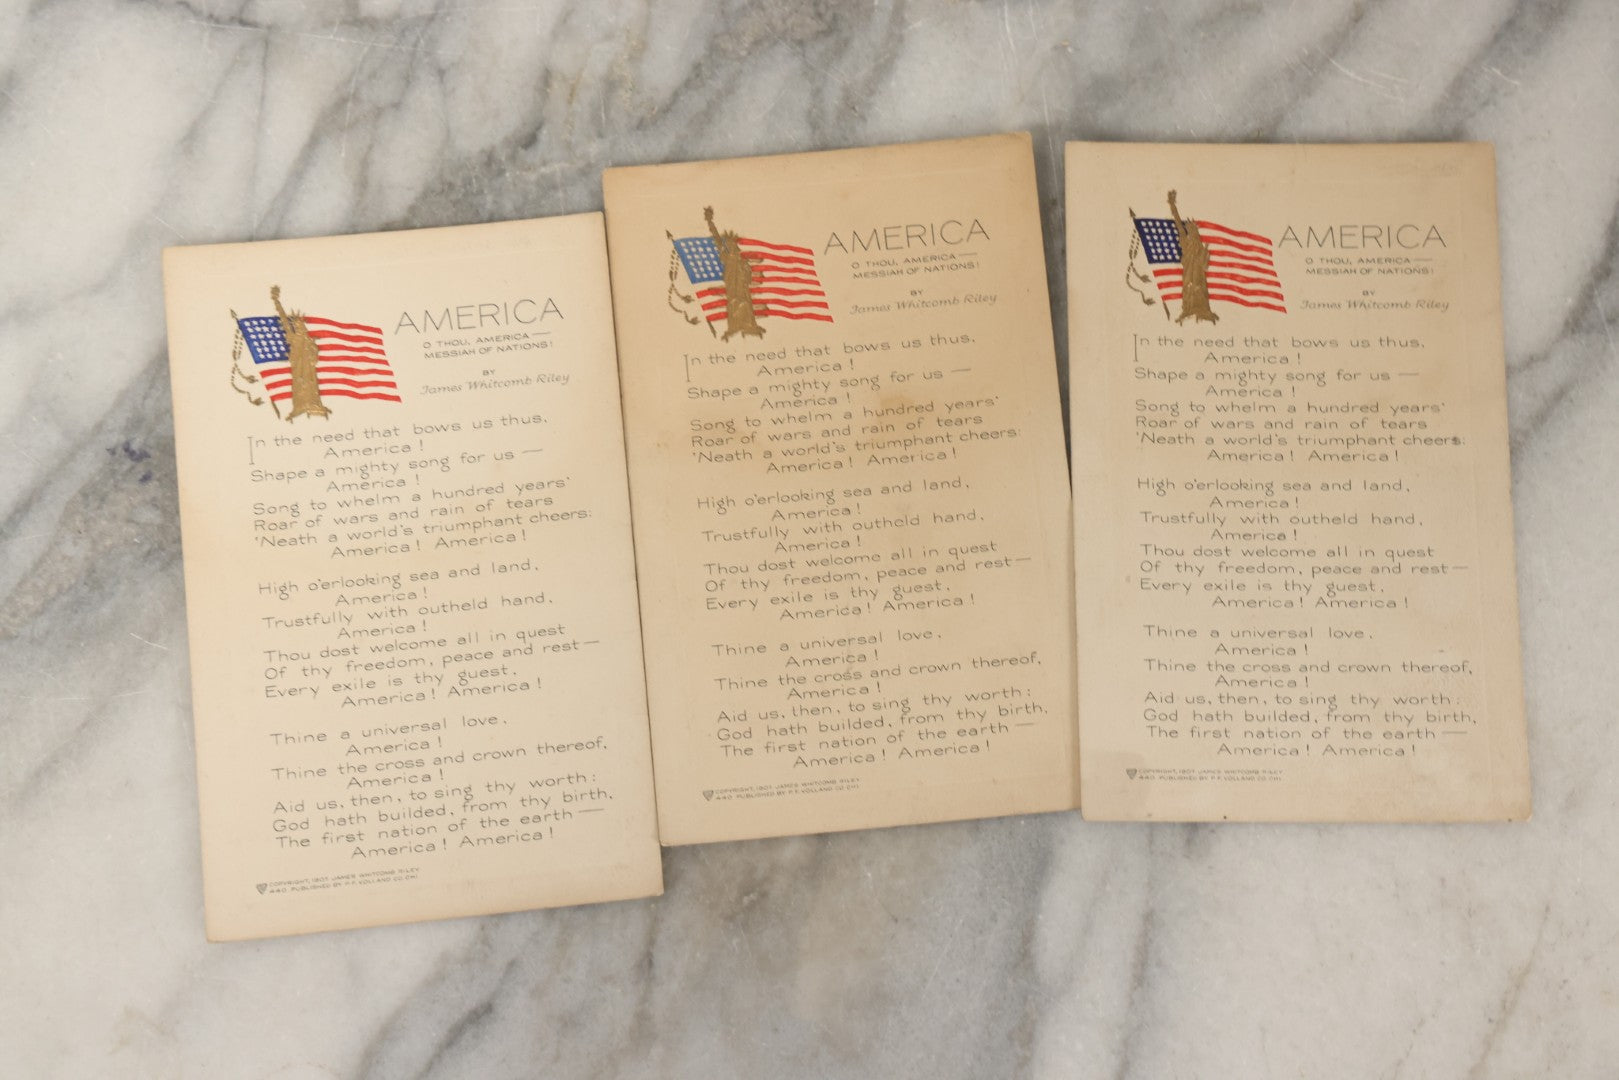 AMERICA
O THOU, AMERICA —
MESSIAH OF NATIONS!
BY
James Whitcomb Riley
In the need that bows us thus,
America!
Shape a mighty song for us —
America!
Song to whelm a hundred years'
Roar of wars and rain of tears
'Neath a world's triumphant cheers:
America! America!
High o'erlooking sea and land,
America!
Trustfully with outheld hand,
America!
Thou dost welcome all in quest
Of thy freedom, peace and rest —
Every exile is thy guest,
America! America!
Thine a universal love,
America!
Thine the cross and crown thereof,
America!
Aid us, then, to sing thy worth:
God hath builded, from thy birth,
The first nation of the earth —
America! America!
COPYRIGHT, 1907 JAMES WHITCOMB RILEY
440 PUBLISHED BY P.F. VOLLAND CO. CHI
AMERICA
O THOU, AMERICA —
MESSIAH OF NATIONS!
BY
James Whitcomb Riley
In the need that bows us thus,
America!
Shape a mighty song for us —
America!
Song to whelm a hundred years'
Roar of wars and rain of tears
'Neath a world's triumphant cheers:
America! America!
High o'erlooking sea and land,
America!
Trustfully with outheld hand,
America!
Thou dost welcome all in quest
Of thy freedom, peace and rest —
Every exile is thy guest,
America! America!
Thine a universal love,
America!
Thine the cross and crown thereof,
America!
Aid us, then, to sing thy worth:
God hath builded, from thy birth,
The first nation of the earth —
America! America!
COPYRIGHT, 1907 JAMES WHITCOMB RILEY
440 PUBLISHED BY P.F. VOLLAND CO. CHI
AMERICA
O THOU, AMERICA —
MESSIAH OF NATIONS!
BY
James Whitcomb Riley
In the need that bows us thus,
America!
Shape a mighty song for us —
America!
Song to whelm a hundred years'
Roar of wars and rain of tears
'Neath a world's triumphant cheers:
America! America!
High o'erlooking sea and land,
America!
Trustfully with outheld hand,
America!
Thou dost welcome all in quest
Of thy freedom, peace and rest —
Every exile is thy guest,
America! America!
Thine a universal love,
America!
Thine the cross and crown thereof,
America!
Aid us, then, to sing thy worth:
God hath builded, from thy birth,
The first nation of the earth —
America! America!
COPYRIGHT, 1907 JAMES WHITCOMB RILEY
440 PUBLISHED BY P.F. VOLLAND CO. CHI